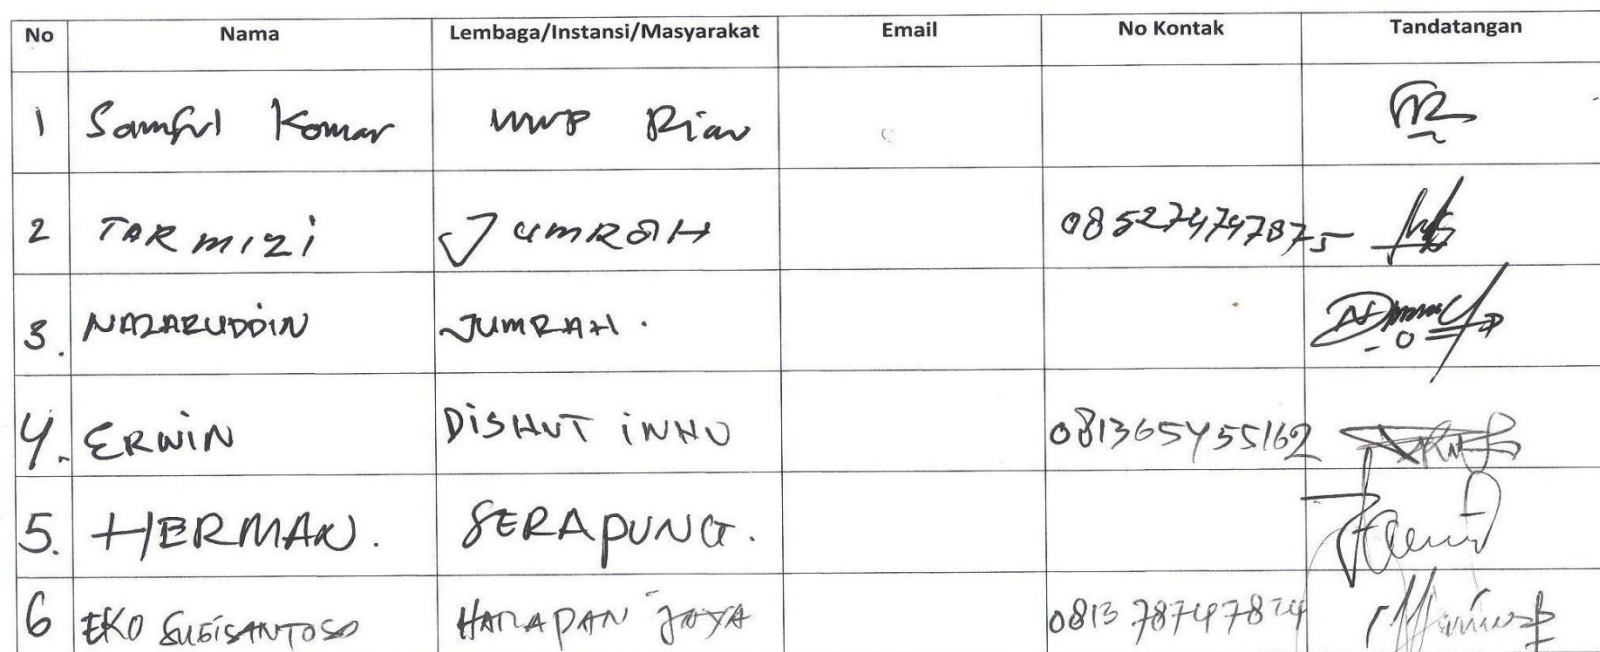 No Nama Lembaga/Instansi/Masyarakat Email No Kontak Tandatangan
1 Samful Komar Riau
2 TARMIZI JUMRAH 085274747875
3. NAZARUDDIN JUMRAH.
4. ERWIN DISHUT INHU 081365455162
5. HERMAN. SERAPUNG.
6 EKO HARAPAN JAYA